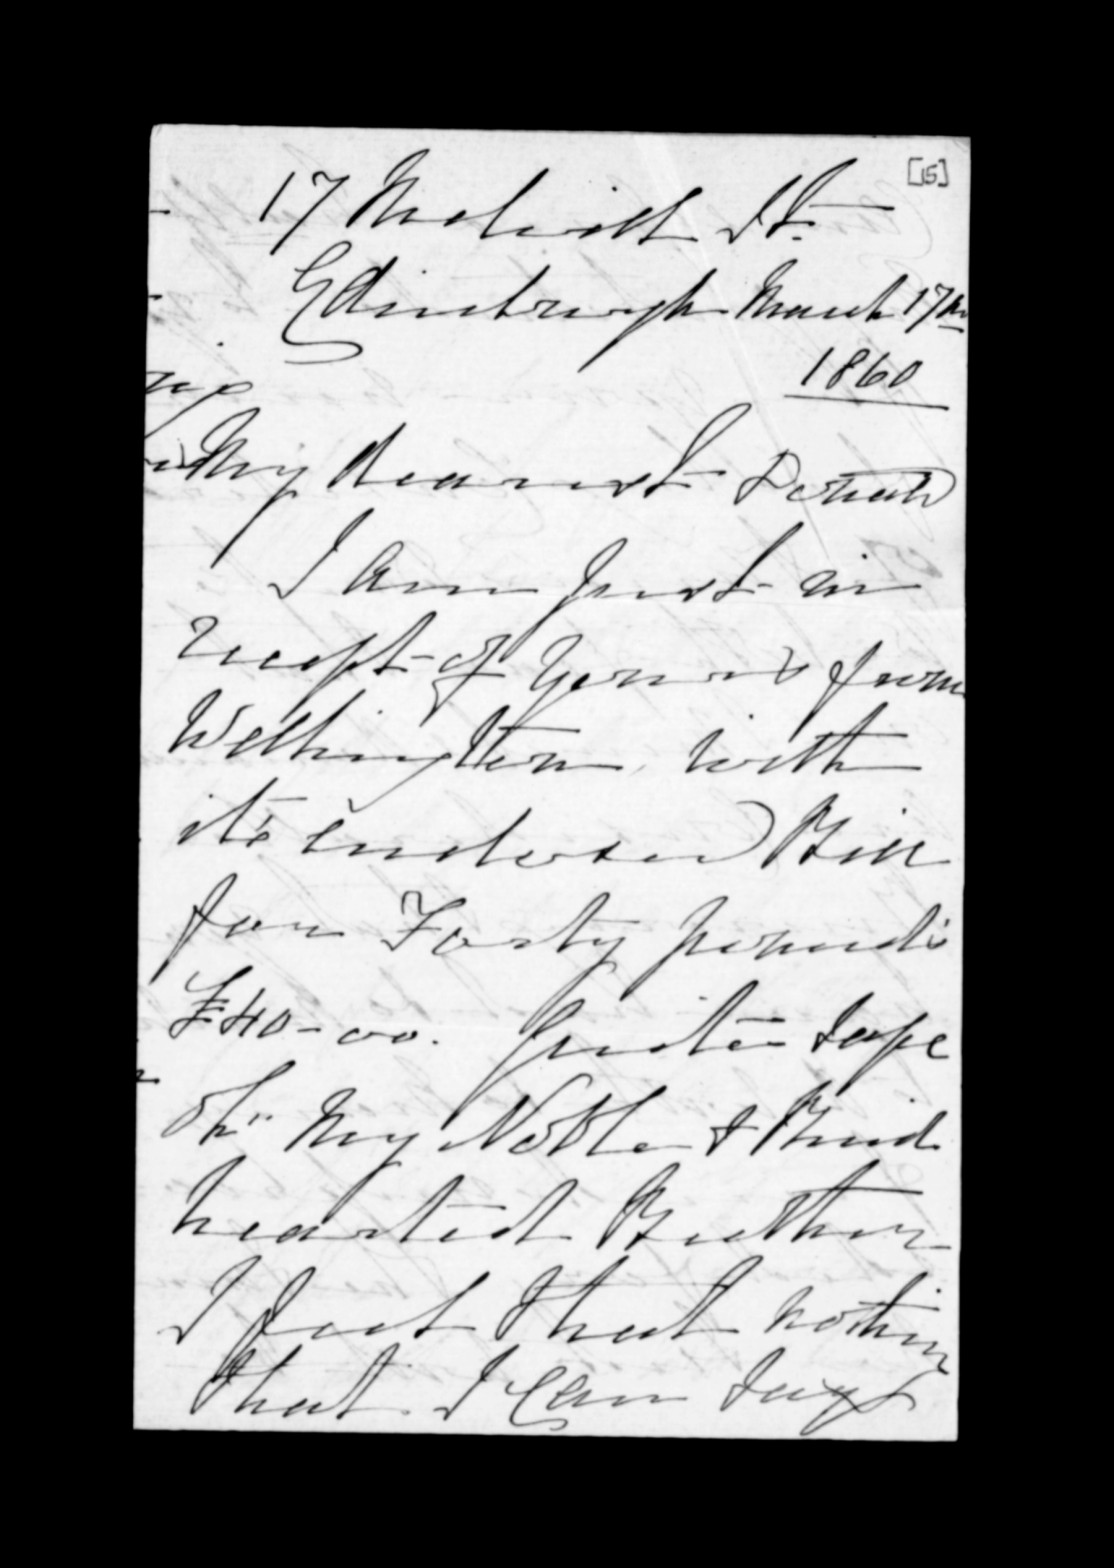 [15]
17 Melvill St.
Edinburgh March 17th
1860
My dearest Donald
I am just in
receipt of yours from
Wellington, with
its enclosed Bill
for Forty pounds
£40-00. quite safe
oh" My Noble & Kind
hearted Brother
I feel that nothing
that I can say